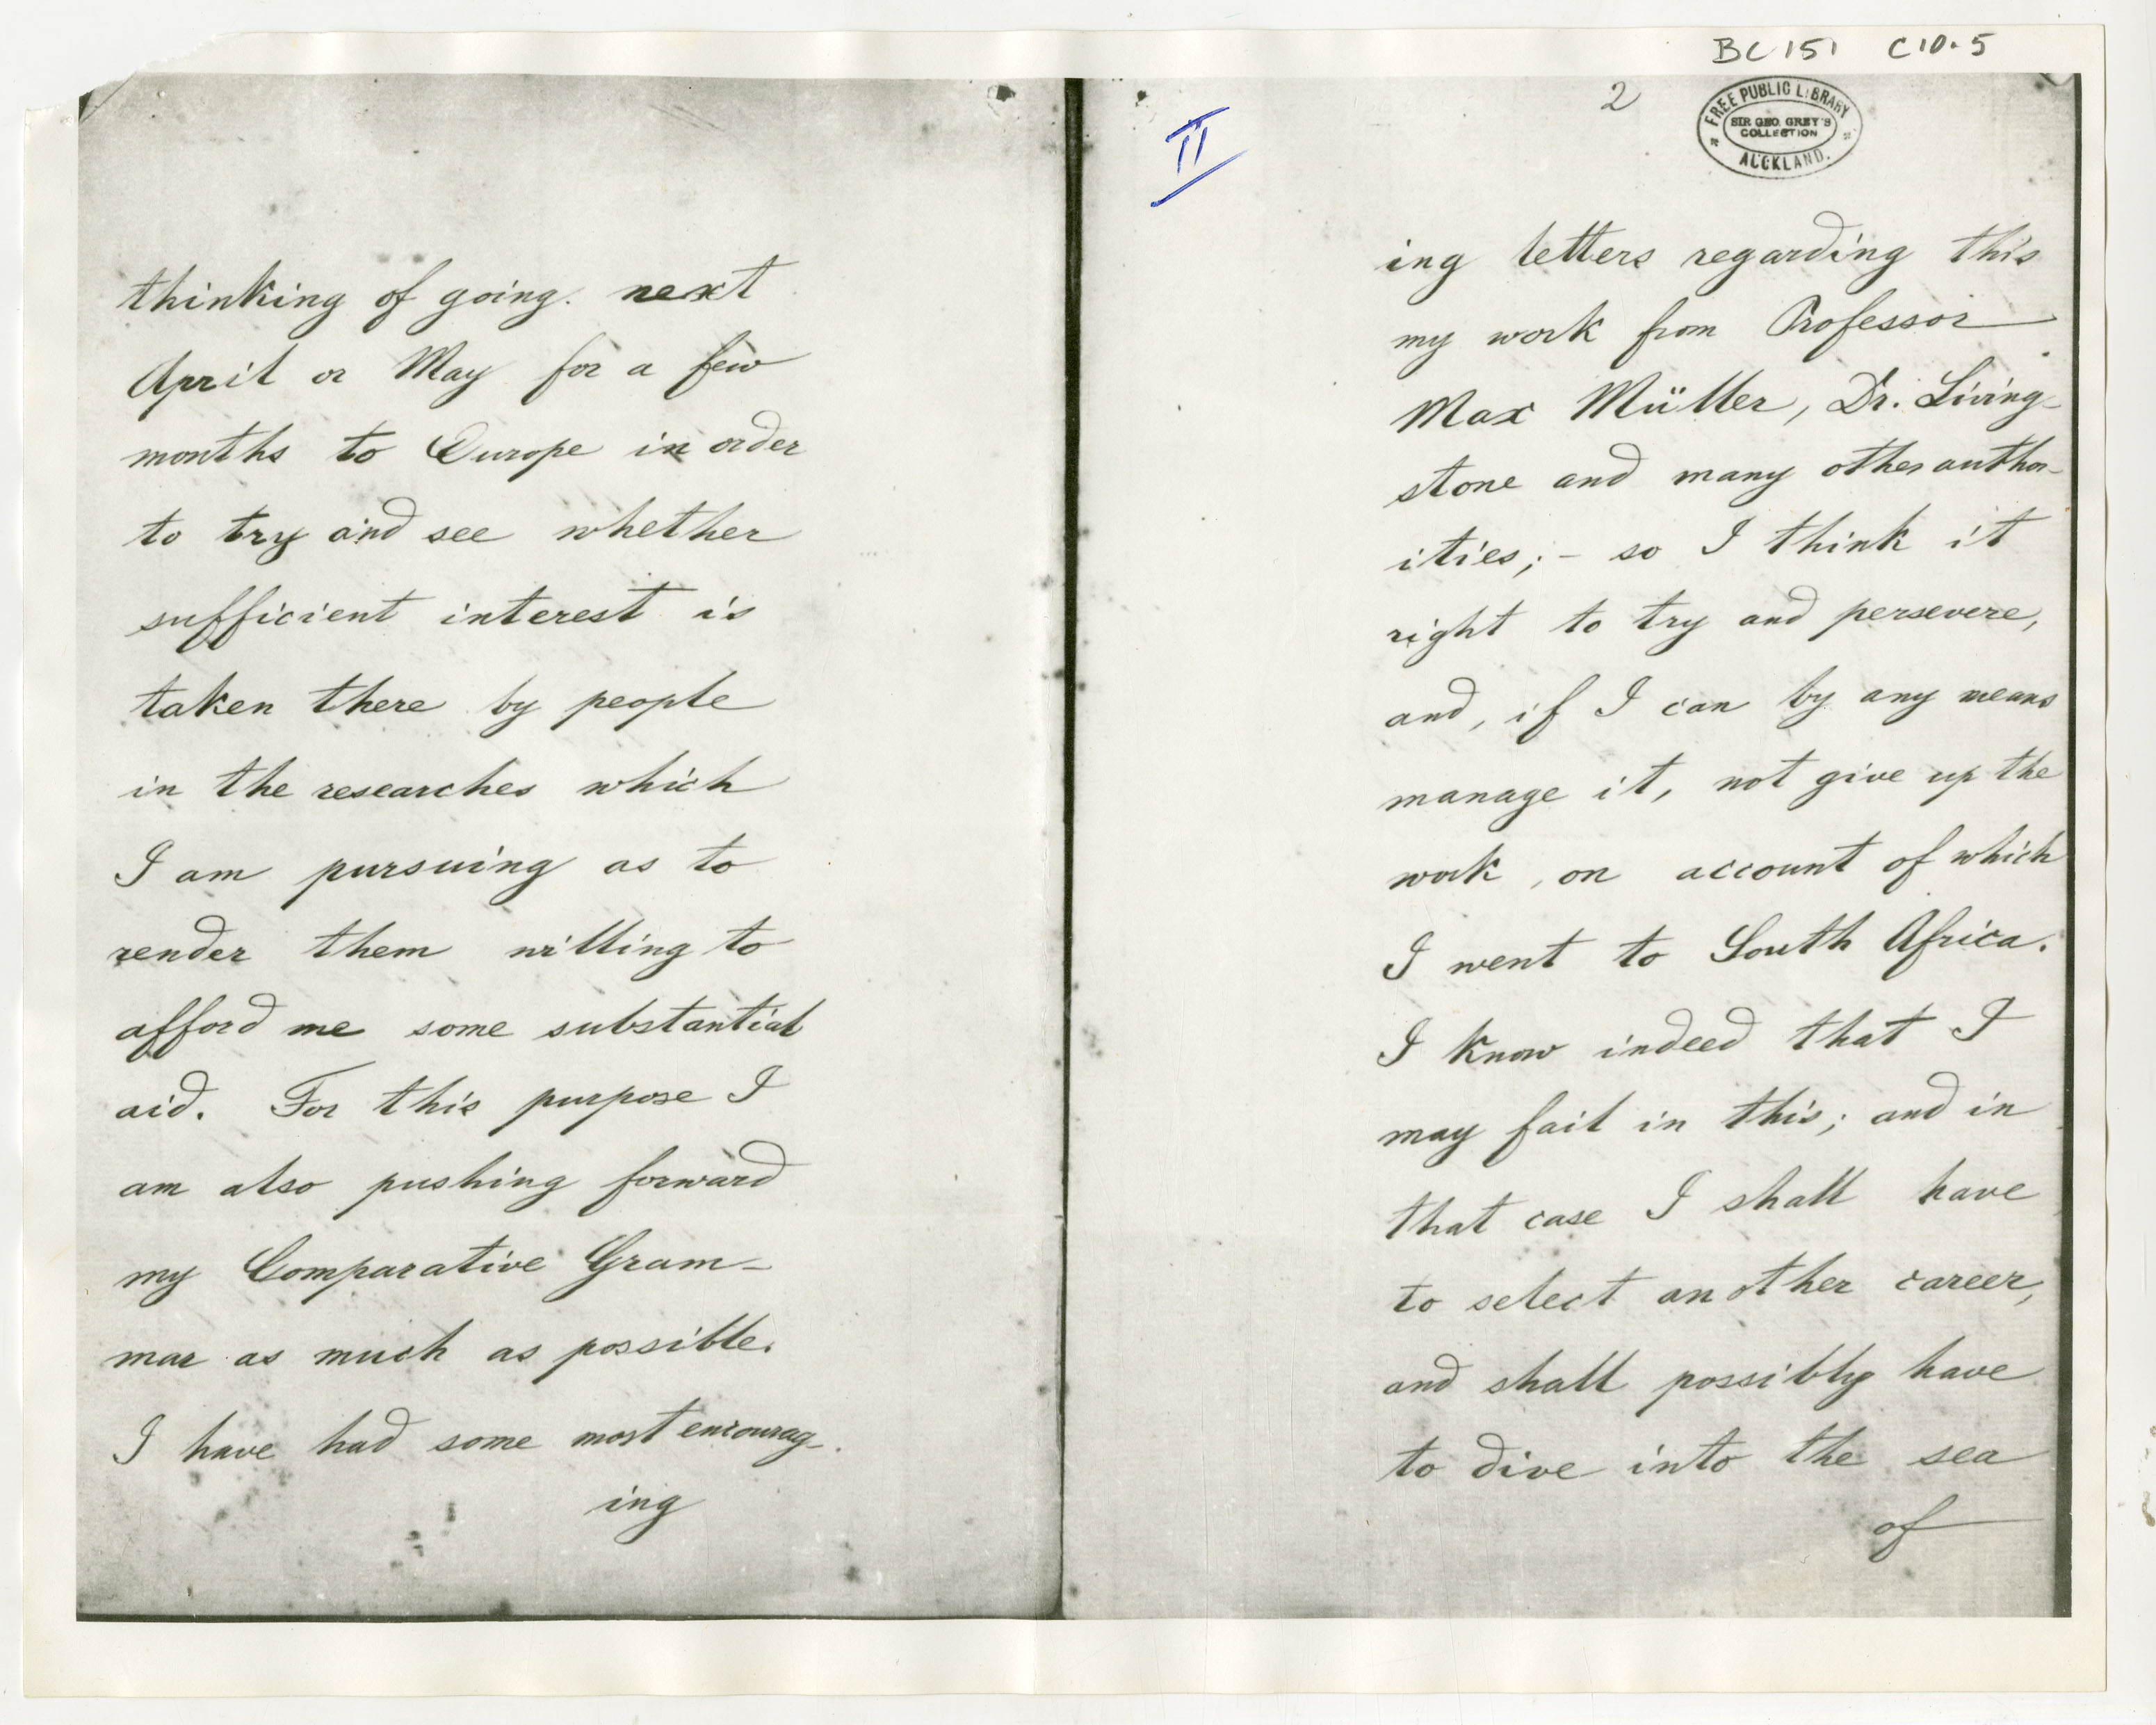 BC 151 C10.5
thinking of going next
April or May for a few
months to Europe in order
to try and see whether
sufficient interest is
taken there by people
in the researches which
I am pursuing as to
render them willing to
afford me some substantial
aid. For this purpose I
am also pushing forward
my Comparative Gram-
mar as much as possible.
I have had some most encourag-
ing
II
2
FREE PUBLIC LIBRARY
SIR GEO. GREY'S
COLLECTION
AUCKLAND.
ing letters regarding this
my work from Professor
Max Müller, Dr. Living-
stone and many other author-
ities; - so I think it
right to try and persevere,
and, if I can by any means
manage it, not give up the
work, on account of which
I went to South Africa.
I know indeed that I
may fail in this; and in
that case I shall have
to select another career,
and shall possibly have
to dive into the sea
of